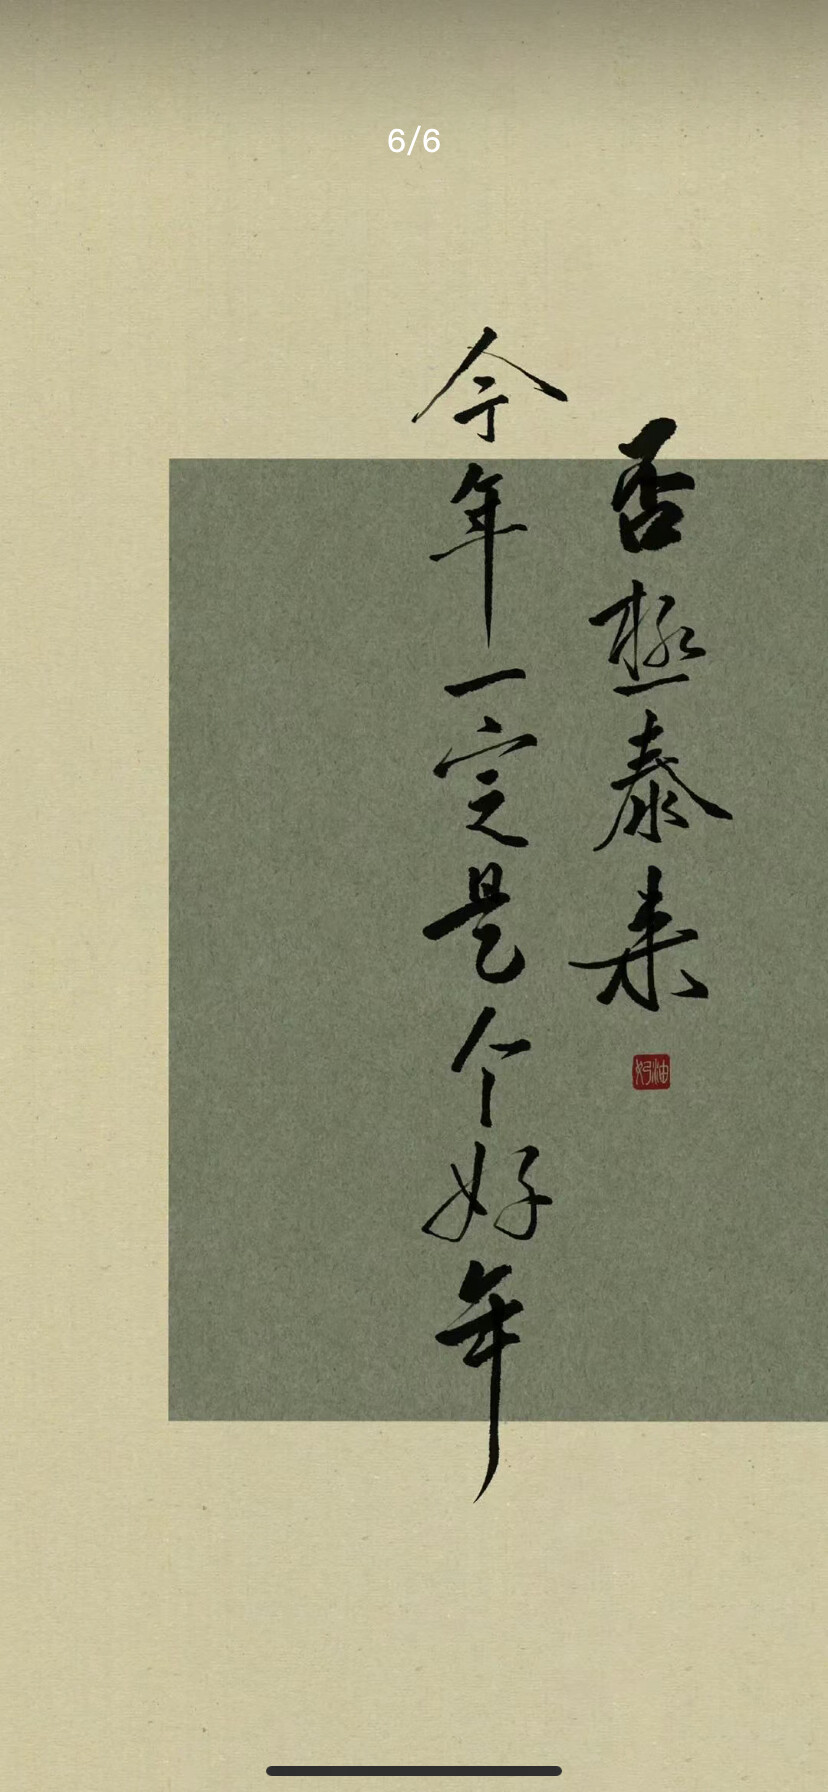 6/6
否極泰来
今年一定是个好年